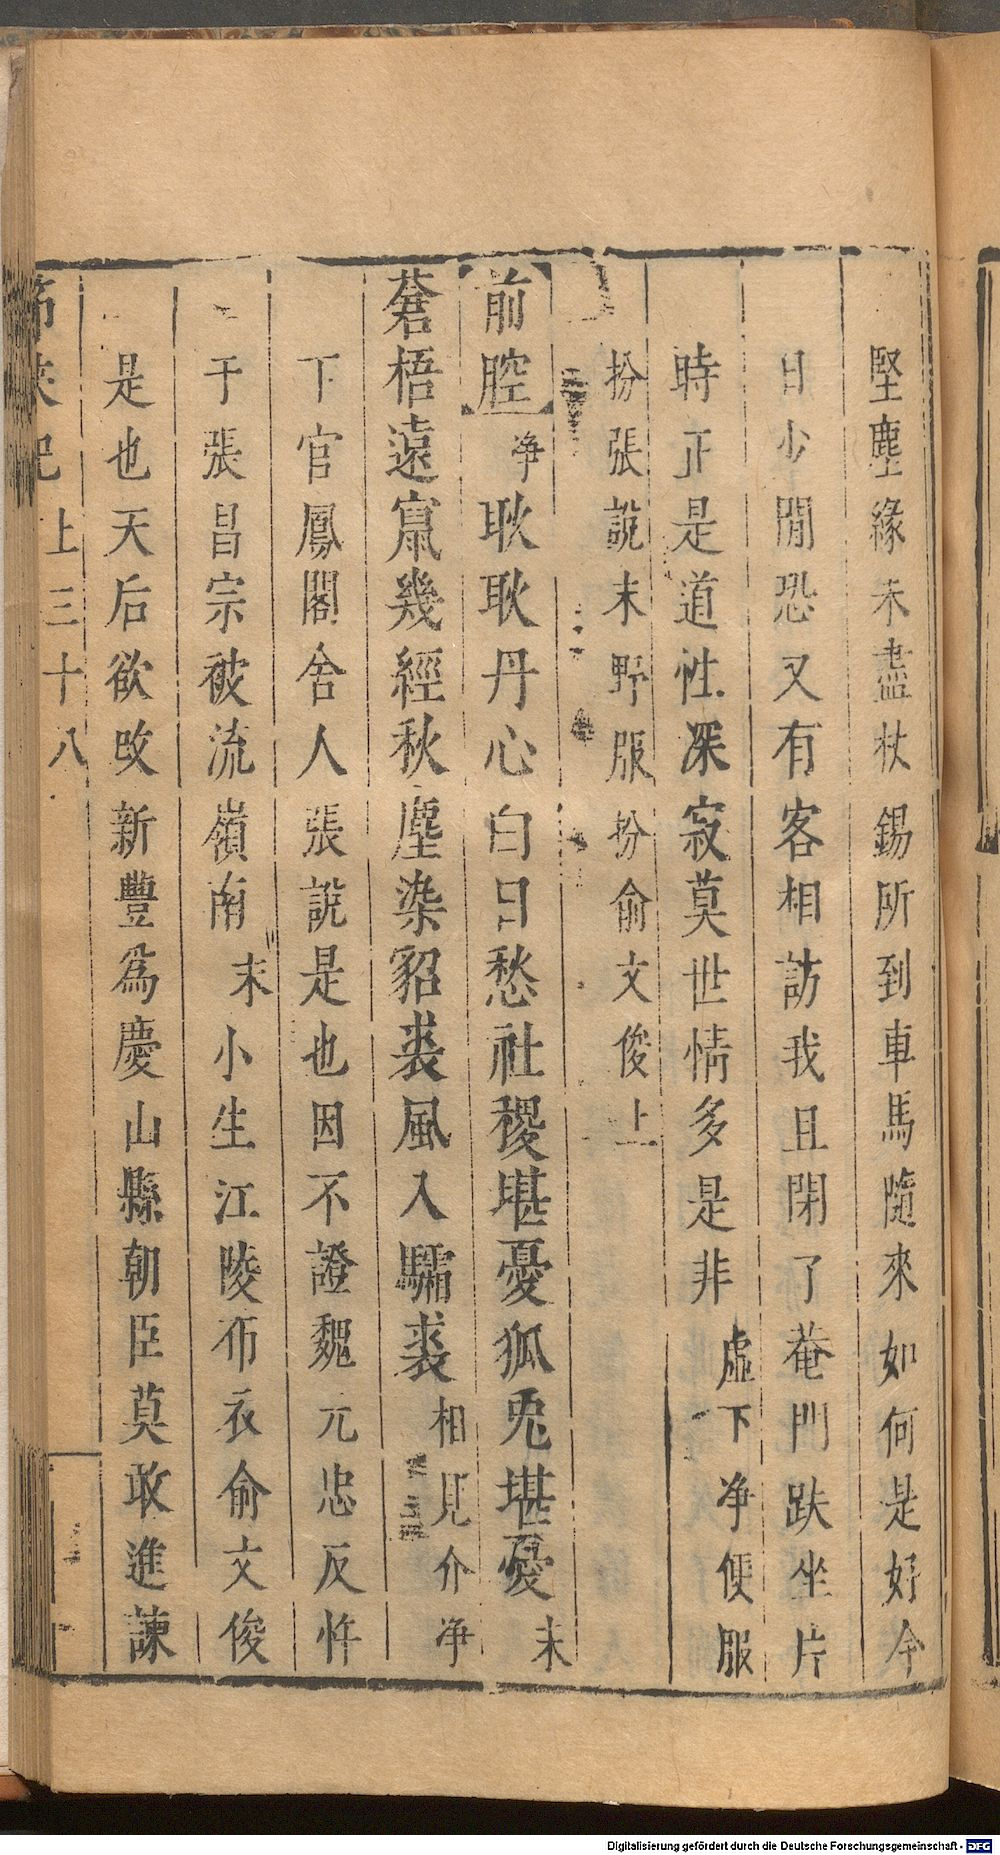 堅塵緣未盡杖錫所到車馬隨來如何是好今
日少閒恐又有客相訪我且閉了菴門趺坐片
時正是道性深寂莫世情多是非虛下净便服
扮張說末野服扮俞文俊上
前腔净耿耿丹心白日愁社稷堪憂狐兎堪憂末
蒼梧遠寘幾經秋塵染貂裘風入驌裘相見介净
下官鳳閣舍人張說是也因不證魏元忠反忤
于張昌宗被流嶺南末小生江陵布衣俞文俊
是也天后欲改新豐爲慶山縣朝臣莫敢進諫
上三十八
Digitalisierung gefördert durch die Deutsche Forschungsgemeinschaft - DFG